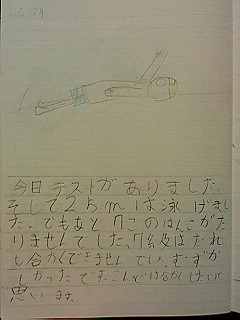 6 21
今日テストがありました。
そして25mは泳げまし
た。でもあと7このはんこがた
りませんでした。7級はだれ
も合かくできませんでした。むずが
しかったです。こんどは合かくしたいと
思います。